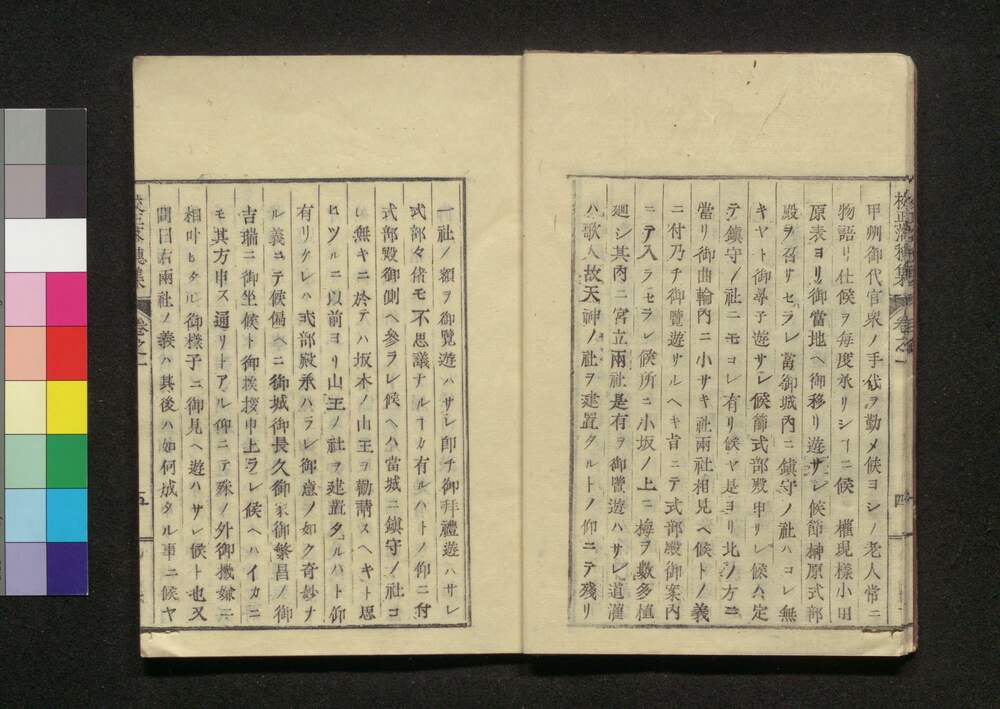 校正落穂集 卷之一 四
甲州御代官衆ノ手代ヲ勤メ候ヨシノ老人常ニ
物語リ仕候ヲ毎度承リシヿニ候 權現樣小田
原表ヨリ御當地ヘ御移リ遊サレ候節榊原式部
殿ヲ召サセラレ當御城内ニ鎮守ノ社ハコレ無
キヤト御尋子遊サレ候節式部殿申リレ候ハ定
テ鎮守ノ社ニモコレ有リ候ヤ是ヨリ北ノ方ニ
當リ御曲輪内ニ小サキ社兩社相見ヘ候トノ義
ニ付乃チ御覽遊サルヘキ旨ニテ式部殿御案内
ニテ入ラセラレ候所ニ小坂ノ上ニ梅ヲ數多植
廻シ其内ニ宮立兩社是有ヲ御覽遊ハサレ道灌
ハ歌人故天神ノ社ヲ建置タルトノ仰ニテ殘リ
一社ノ額ヲ御覽遊ハサレ即チ御拜禮遊ハサレ
式部々偖モ不思議ナルヿカ有ルハトノ仰ニ付
式部殿御側ヘ參ラレ候ヘハ當城ニ鎮守ノ社コ
レ無キニ於テハ坂本ノ山王ヲ勸請スヘキト思
ヒツルニ以前ヨリ山王ノ社ヲ建置タルハト仰
有リケレハ式部殿承ハラレ御意ノ如ク奇妙ナ
ル義ニテ候偏ヘニ御城御長久御家御繁昌ノ御
吉瑞ニ御坐候ト御挨拶申上ラレ候ヘハイカニ
モ其方申ス通リトアル仰ニテ殊ノ外御機嫌ニ
相叶ヒタル御樣子ニ御見ヘ遊ハサレ候ト也又
問曰右兩社ノ義ハ其後ハ如何成タル事ニ候ヤ
校正落穂集 卷之一 五